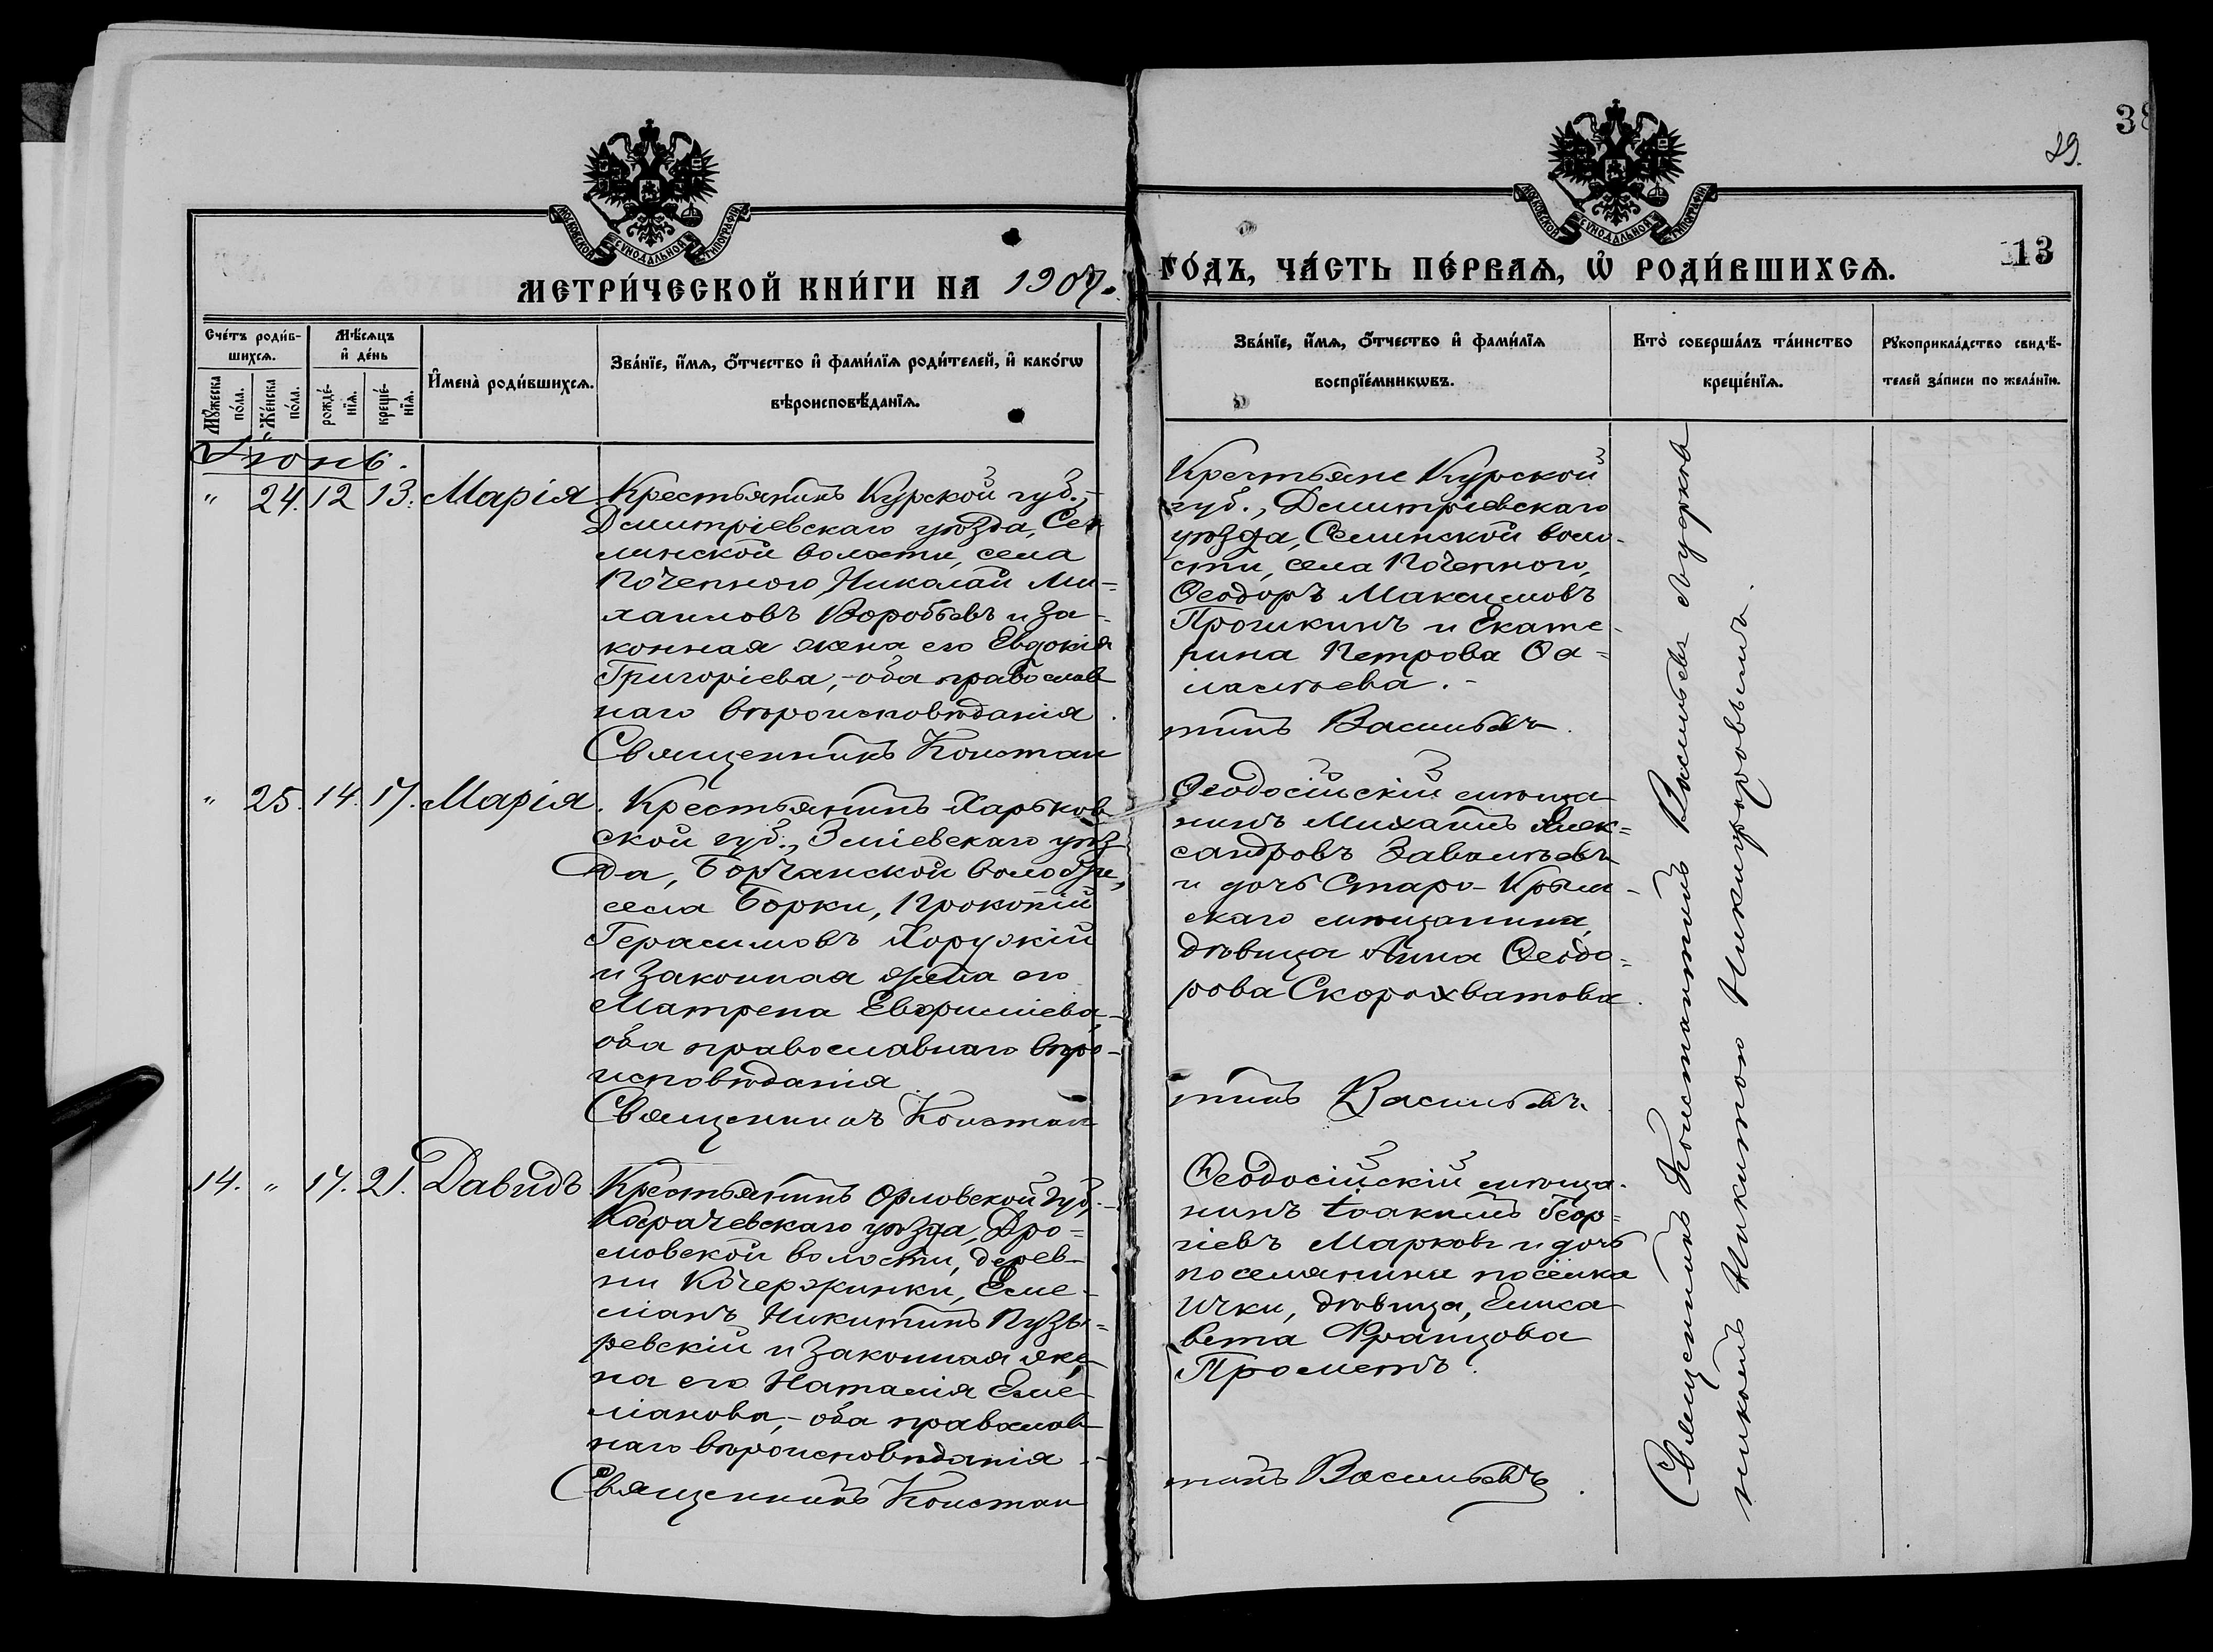 38
29.
МОСКОВСКОЙ СѴНОДАЛЬНОЙ ТИПОГРАФІИ
МОСКОВСКОЙ СѴНОДАЛЬНОЙ ТИПОГРАФІИ
МЕТРИ́ЧЕСКОЙ КНИ́ГИ НА 1907. ГО́ДЪ, ЧА́СТЬ ПЕ́РВАѦ, Ѡ҆ РОДИ́ВШИХСѦ.
13
Сче́тъ роди́в-
шихсѧ.
Мꙋ́жеска по́ла.
Же́нска по́ла.
Мѣ́сѧцъ
и҆ де́нь
рожде́-
нїѧ.
креще́-
нїѧ.
И҆мена̀ роди́вшихсѧ.
Зва́нїе, и҆́мѧ, ѻ҆́тчество и҆ фами́лїѧ роди́телей, и҆ како́гѡ
вѣроисповѣ́данїѧ.
Зва́нїе, и҆́мѧ, ѻ҆́тчество и҆ фами́лїѧ
воспрїе́мникѡвъ.
Кто̀ соверша́лъ та́инство
креще́нїѧ.
Рꙋкоприкла́дство свидѣ́-
телей за́писи по жела́нїю.
Іюнь.
" 24. 12 13. Марія
Крестьянинъ Курской губ.,-
Дмитріевскаго уѣзда, Сел
линской волости, села
Поченного, Николай Ми=
хаиловъ Воробьевъ и за-
конная жена его Евдокія
Григоріева,- оба православ
наго вѣроисповѣданія.
Священникъ Констан
Крестьяне Курской
губ., Дмитріевскаго
уѣзда, Селинской воло-
сти, села Поченного,
Ѳеодоръ Максимовъ
Прошкинъ и Екате-
рина Петрова
тинъ Васильевъ.
" 25. 14. 17. Марія.
Крестьянинъ Харьков
ской губ., Зміевскаго уѣз-
да, Борчанской волости,
села Борки, Прокопій
Герасимовъ Хорускій
и законная жена его
Матрена Евфиміева,-
оба православнаго вѣро-
исповѣданія.
Священникъ Констан
Ѳеодосійскій мѣща
нинъ Михаилъ Алек=
сандровъ Завалѣевъ
и дочь Старо-Крым-
скаго мѣщанина,
дѣвица Анна Ѳеодо=
рова Скорохватова.
тинъ Васильевъ.
14. " 17. 21. Давидъ
Крестьянинъ Орловской губ.,-
Карачевскаго уѣзда, Дро=
новской волости, дерев-
ни Кочержинки, Еме-
ліанъ Никитинъ Пузы=
ревскій и законная же-
на его Наталія Еме-
ліанова,- оба православ
наго вѣроисповѣданія.-
Священникъ Констан
Ѳеодосійскій мѣща-
нинъ Іоакимъ Геор=
гіевъ Марковъ и дочь
поселянина посёлка
Ички, дѣвица, Елиса
вета Францова
Прометъ.
тинъ Васильевъ.
Священникъ Константинъ Васильевъ
никомъ Никитою Никифоровымъ.